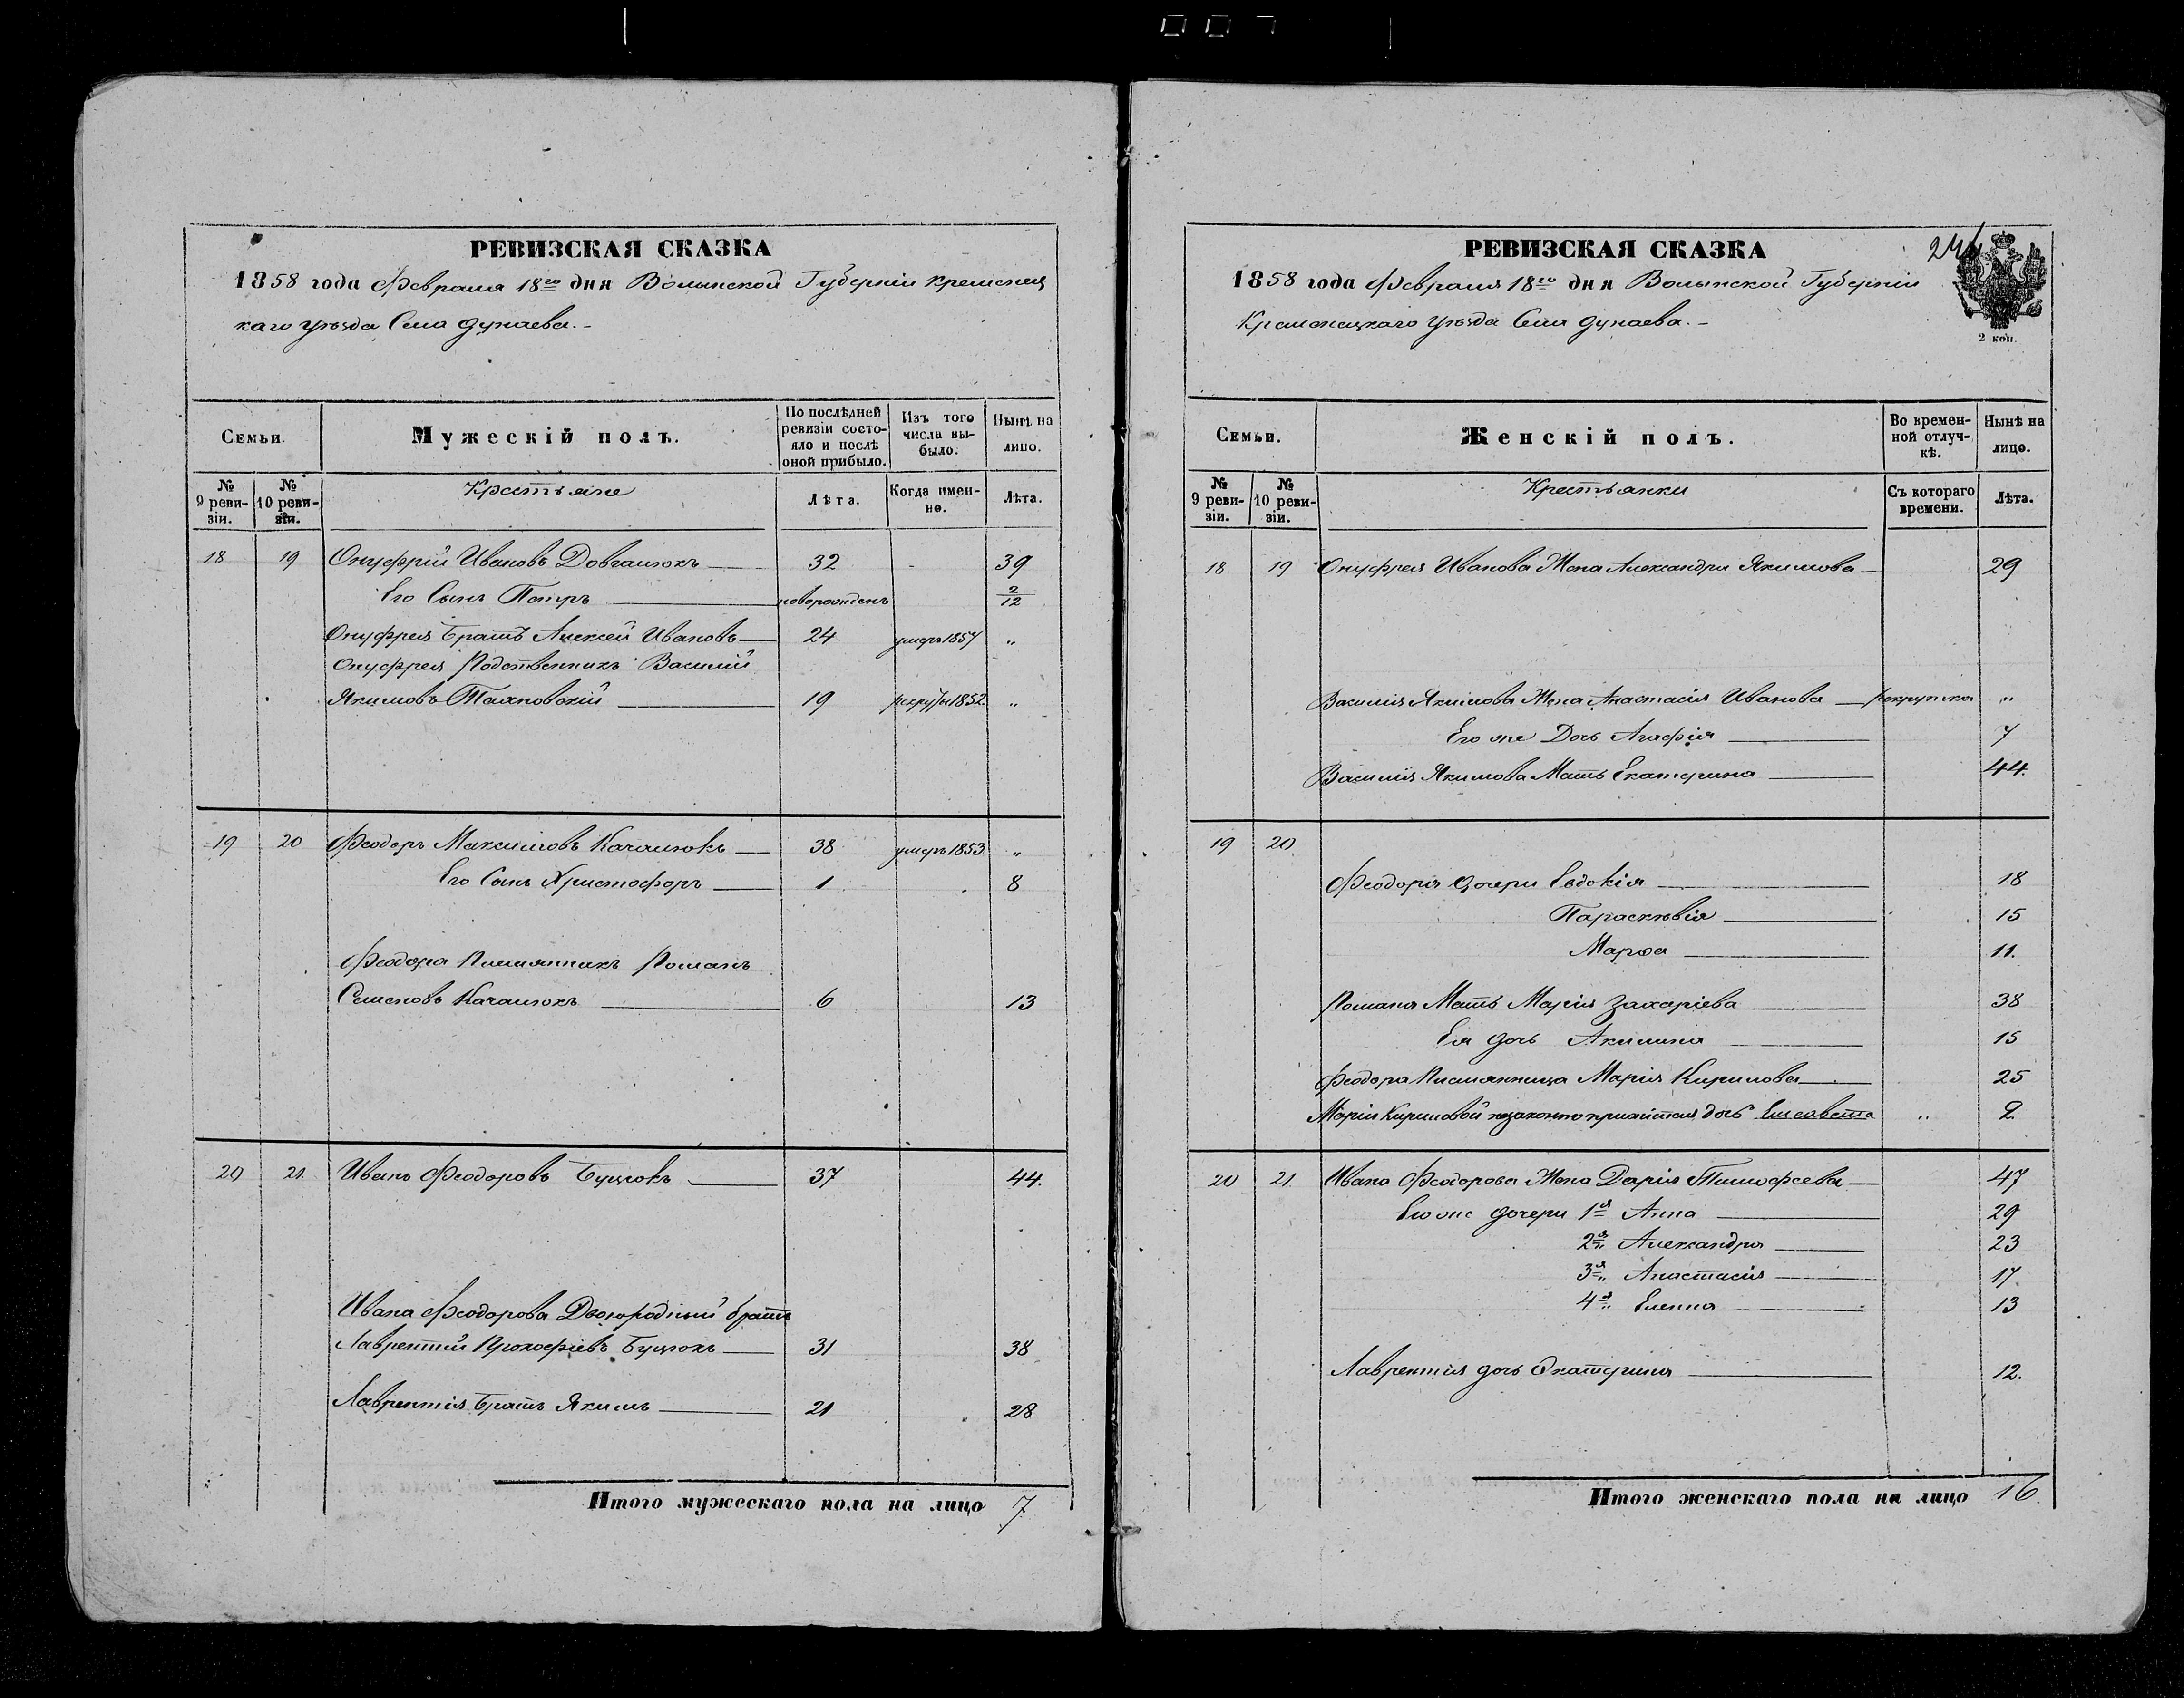 РЕВИЗСКАЯ СКАЗКА
1858 года Февраля 18го дня Волынской Губерніи Кременец
каго уѣзда Села Дунаева.-
Семьи.
Мужескій полъ.
По послѣдней ревизіи состояло и послѣ оной прибыло.
Изъ того числа выбыло.
Нынѣ на лицо.
№ 9 ревизіи.
№ 10 ревизіи.
Крестьяне
Лѣта.
Когда именно.
Лѣта.
18 19 Онуфрій Ивановъ Довгалюкъ 32 - 39
Его Сынъ Петръ новорожденъ 2/12
Онуфрія Братъ Алексей Ивановъ 24 умеръ 1857 "
Онуфрея Родственникъ Василій
Якимовъ 19 рекруты 1852. "
19 20 Феодоръ Максимовъ Качалюкъ 38 умеръ 1853 "
Его Сынъ Христофоръ 1 8
Феодора Племянникъ Романъ
Семеновъ Качалюкъ 6 13
20 21. Иванъ Феодоровъ Буцюкъ 37 44.
Ивана Феодорова Двоюродный братъ
Лаврентій Прокофіевъ Буцюкъ 31 38
Лаврентія Братъ Якимъ 21 28
Итого мужескаго пола на лицо 7
РЕВИЗСКАЯ СКАЗКА
2 коп.
1858 года Февраля 18го дня Волынской Губерніи
Кременецкаго уѣзда Села Дунаева.-
Семьи.
Женскій полъ.
Во временной отлучкѣ.
Нынѣ на лицо.
№ 9 ревизіи.
№ 10 ревизіи.
Крестьянки
Съ котораго времени.
Лѣта.
18 19 Онуфрея Иванова Жена Александра Якимова 29
Василія Якимова Жена Анастасія Иванова рекрутка "
Его же Дочь Агафія 7
Василія Якимова Мать Екатерина 44.
19 20
Феодора дочери Евдокія 18
Параскевія 15
Марѳа 11.
Романа Мать Марія Захаріева 38
Ея дочь Акилина 15
Феодора Племянница Марія Кирилова 25
Маріи Кириловой незаконно прижитая дочь Елисавета " 2
20 21. Ивана Феодорова Жена Дарія Тимофеева 47
Его же дочери 1я Анна 29
2я Александра 23
3я Анастасія 17
4я Еленна 13
Лаврентія дочь Екатерина 12.
Итого женскаго пола на лицо 16